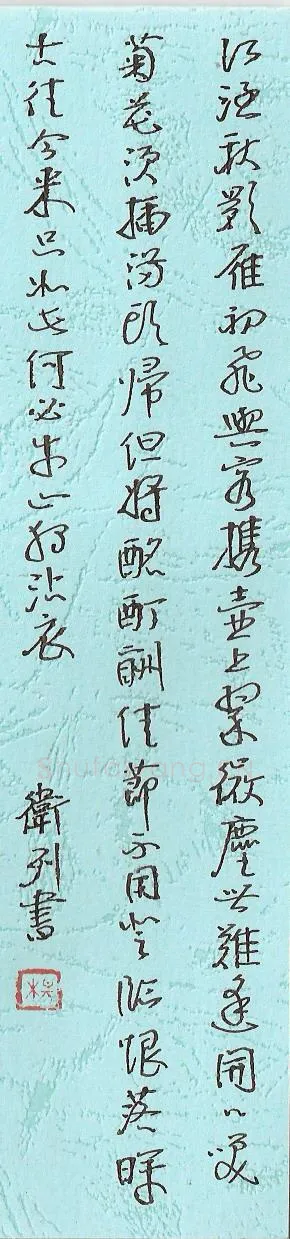 江涵秋影雁初飛與客攜壺上翠微塵世難逢開口笑
菊花須插滿頭歸但將酩酊酬佳節不用登臨恨落暉
古往今來只如此何必牛山獨沾衣
衛列書